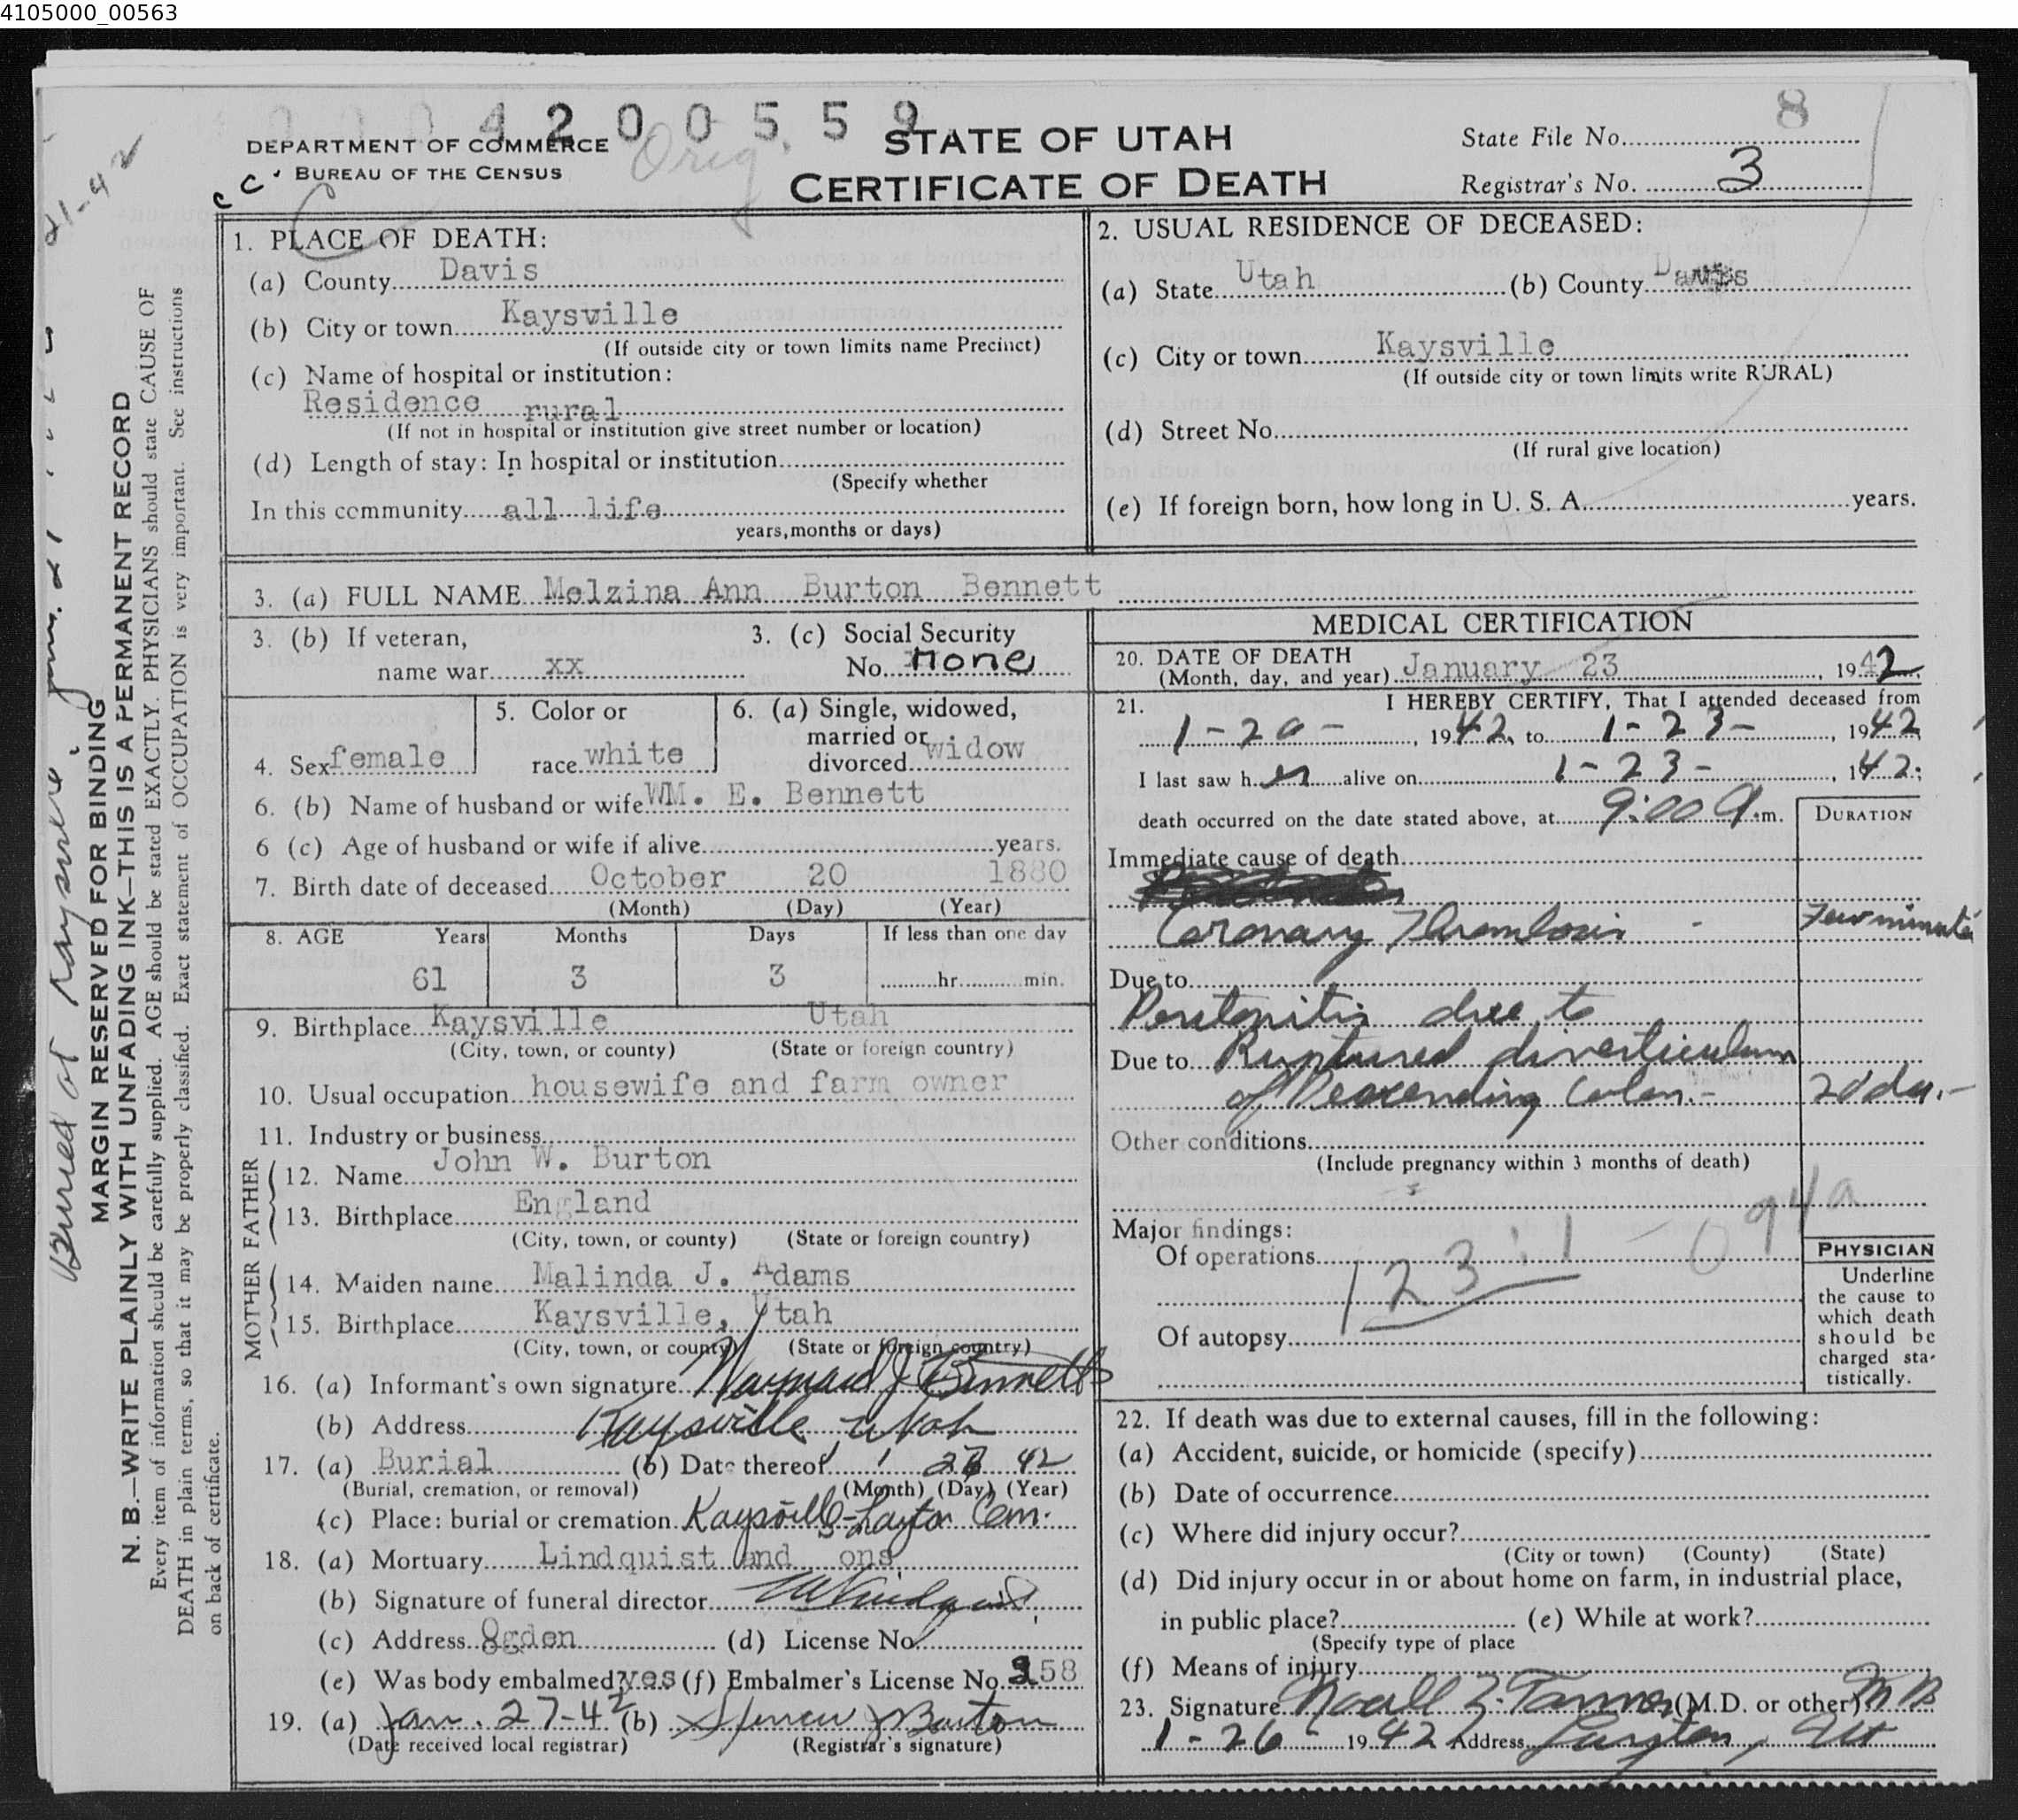 4105000_00563
000 4200559
DEPARTMENT OF COMMERCE
BUREAU OF THE CENSUS
Orig.
STATE OF UTAH
CERTIFICATE OF DEATH
State File No. 8
Registrar's No. 3
1. PLACE OF DEATH:
(a) County Davis
(b) City or town Kaysville
(If outside city or town limits name Precinct)
(c) Name of hospital or institution:
Residence rural
(If not in hospital or institution give street number or location)
(d) Length of stay: In hospital or institution
(Specify whether
In this community all life
years, months or days)
2. USUAL RESIDENCE OF DECEASED:
(a) State Utah (b) County Davis
(c) City or town Kaysville
(If outside city or town limits write RURAL)
(d) Street No.
(If rural give location)
(e) If foreign born, how long in U. S. A. years.
3. (a) FULL NAME Melzina Ann Burton Bennett
3. (b) If veteran,
name war xx
3. (c) Social Security
No. none
4. Sex female
5. Color or
race white
6. (a) Single, widowed,
married or
divorced widow
6. (b) Name of husband or wife WM. E. Bennett
6 (c) Age of husband or wife if alive years.
7. Birth date of deceased October 20 1880
(Month) (Day) (Year)
8. AGE Years Months Days If less than one day
61 3 3 hr. min.
9. Birthplace Kaysville Utah
(City, town, or county) (State or foreign country)
10. Usual occupation housewife and farm owner
11. Industry or business
FATHER
12. Name John W. Burton
13. Birthplace England
(City, town, or county) (State or foreign country)
MOTHER
14. Maiden name Malinda J. Adams
15. Birthplace Kaysville, Utah
(City, town, or county) (State or foreign country)
16. (a) Informant's own signature Maynard J Bennett
(b) Address Kaysville Utah
17. (a) Burial (b) Date thereof 1 27 42
(Burial, cremation, or removal) (Month) (Day) (Year)
(c) Place: burial or cremation Kaysville-Layton Cem.
18. (a) Mortuary Lindquist and ons
(b) Signature of funeral director
(c) Address Ogden (d) License No.
(e) Was body embalmed? yes (f) Embalmer's License No. 358
19. (a) Jan. 27-42 (b) Spencer J Burton
(Date received local registrar) (Registrar's signature)
MEDICAL CERTIFICATION
20. DATE OF DEATH
(Month, day, and year) January 23, 1942.
21. I HEREBY CERTIFY, That I attended deceased from
1-20-, 1942, to 1-23-, 1942
I last saw her alive on 1-23-, 1942;
death occurred on the date stated above, at 9:00 a.m.
DURATION
Immediate cause of death
Coronary Thrombosis - Few minutes
Due to
Peretonitis due to
Due to Ruptured diverticulum
of Descending Colon.- 20 da.-
Other conditions
(Include pregnancy within 3 months of death)
Major findings:
Of operations
123:1 - 094a
Of autopsy
PHYSICIAN
Underline
the cause to
which death
should be
charged sta-
tistically.
22. If death was due to external causes, fill in the following:
(a) Accident, suicide, or homicide (specify)
(b) Date of occurrence
(c) Where did injury occur?
(City or town) (County) (State)
(d) Did injury occur in or about home on farm, in industrial place,
in public place? (e) While at work?
(Specify type of place
(f) Means of injury
23. Signature Noall Z. Tanner (M.D. or other) M D
1-26- 1942 Address Layton, Ut
MARGIN RESERVED FOR BINDING
N. B.—WRITE PLAINLY WITH UNFADING INK—THIS IS A PERMANENT RECORD
Every item of information should be carefully supplied. AGE should be stated EXACTLY. PHYSICIANS should state CAUSE OF
DEATH in plain terms, so that it may be properly classified. Exact statement of OCCUPATION is very important. See instructions
on back of certificate.